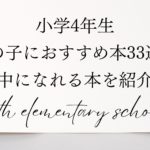 小学4年生
の子におすすめ本33選
中になれる本を紹介
th elementary schoo